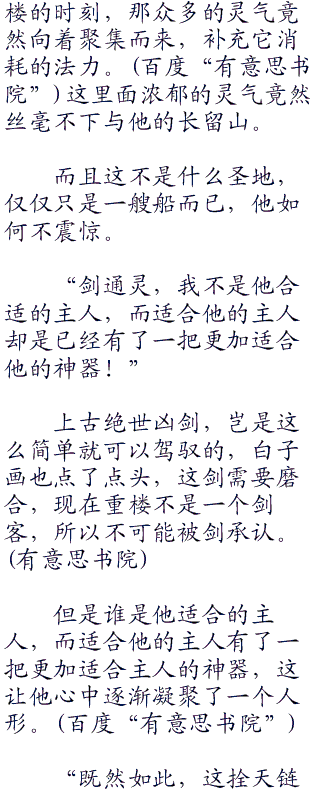 楼的时刻，那众多的灵气竟
然向着聚集而来，补充它消
耗的法力。(百度“有意思书
院”)这里面浓郁的灵气竟然
丝毫不下与他的长留山。
而且这不是什么圣地，
仅仅只是一艘船而已，他如
何不震惊。
“剑通灵，我不是他合
适的主人，而适合他的主人
却是已经有了一把更加适合
他的神器！”
上古绝世凶剑，岂是这
么简单就可以驾驭的，白子
画也点了点头，这剑需要磨
合，现在重楼不是一个剑
客，所以不可能被剑承认。
(有意思书院)
但是谁是他适合的主
人，而适合他的主人有了一
把更加适合主人的神器，这
让他心中逐渐凝聚了一个人
形。(百度“有意思书院”)
“既然如此，这拴天链